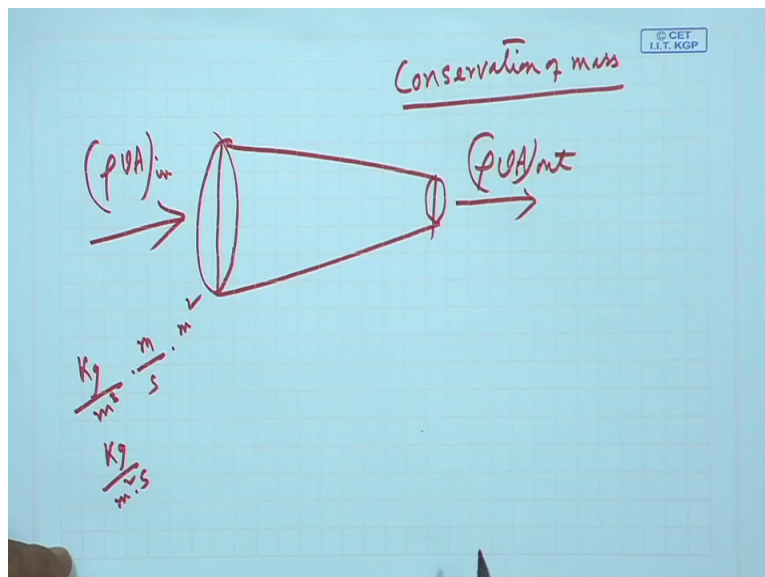 © CET
I.I.T. KGP
Conservation of mass
(ρVA)in
(ρVA)out
Kg/m³ · m/s · m²
Kg/m²·s